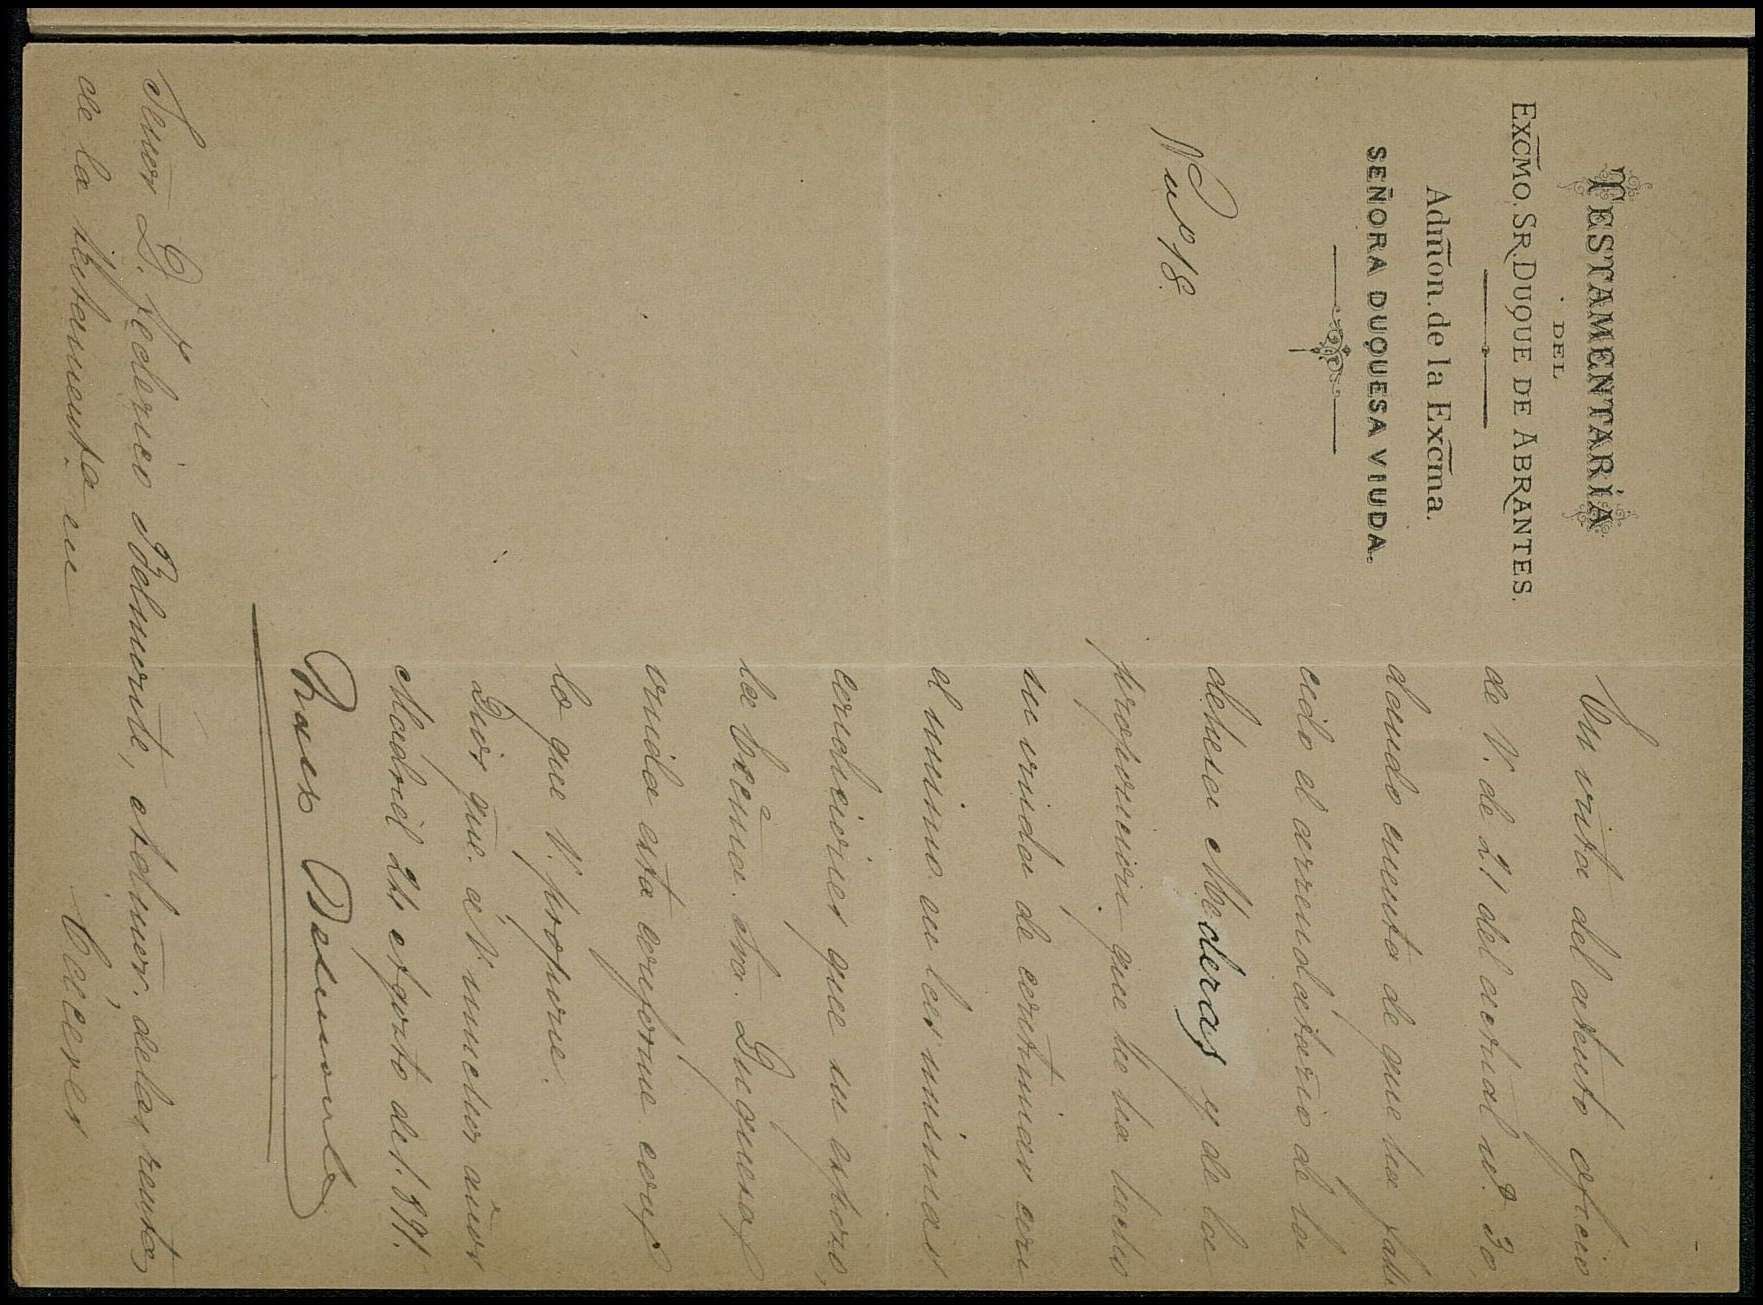 TESTAMENTARÍA
DEL
EXCMO. SR. DUQUE DE ABRANTES.
Admon. de la Excma.
SEÑORA DUQUESA VIUDA.
Nº 18.
En vista del atento oficio
de V. de 21 del actual nº 30,
dando cuenta de que ha falle
cido el arrendatario de la
dehesa Mederas y de la
proposicion que le ha hecho
su viuda de continuar con
el mismo en las mismas
condiciones que su esposo,
la Excma. Sra. Duquesa
viuda está conforme con
lo que V. propone.
Dios gue. á V. muchos años
Madrid 24 Agosto de 1.891.
Belmonte
Señor D. Federico Belmonte, Admor. de las rentas
de la testamenta en
Cáceres